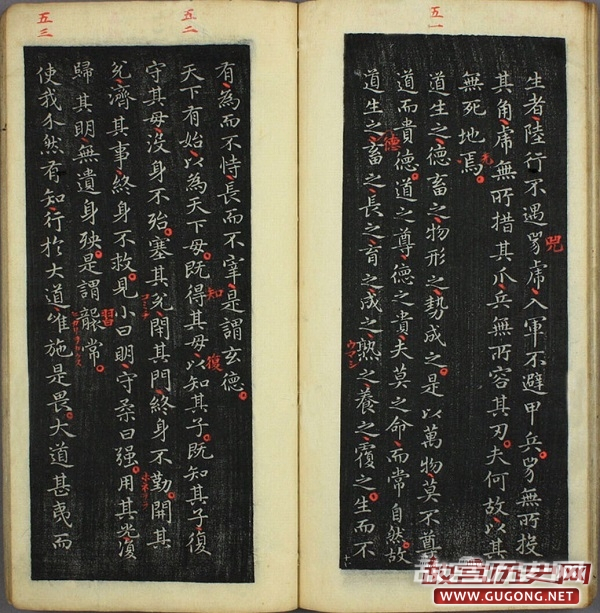 五一
生者陸行不遇兕虎入軍不避甲兵兕無所投
兕
其角虎無所措其爪兵無所容其刃夫何故以其
無死地焉
道生之德畜之物形之勢成之是以萬物莫不尊
道而貴德道之尊德之貴夫莫之命而常自然故
德
道生之畜之長之育之成之熟之養之覆之生而不
ウマシ
五二
有為而不恃長而不宰是謂玄德
知
天下有始以為天下母既得其母以知其子既知其子復
復
守其母没身不殆塞其兌閉其門終身不勤開其
兌濟其事終身不救見小曰明守柔曰强用其光復
歸其明無遺身殃是謂襲常
習
五三
使我介然有知行於大道唯施是畏大道甚夷而
故宫历史网
WWW.GUGONG.NET